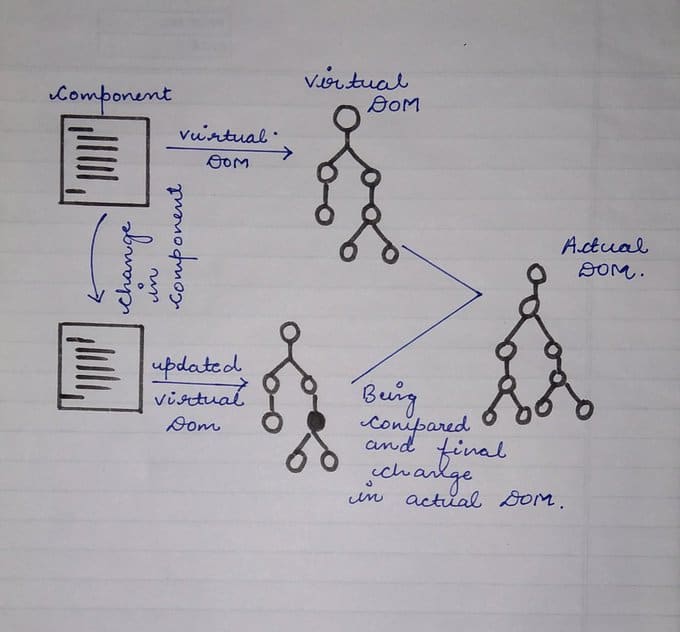 Component
Virtual
DOM
virtual
DOM
change
in
component
Actual
DOM.
updated
virtual
Dom
Being
compared
and final
change
in actual DOM.